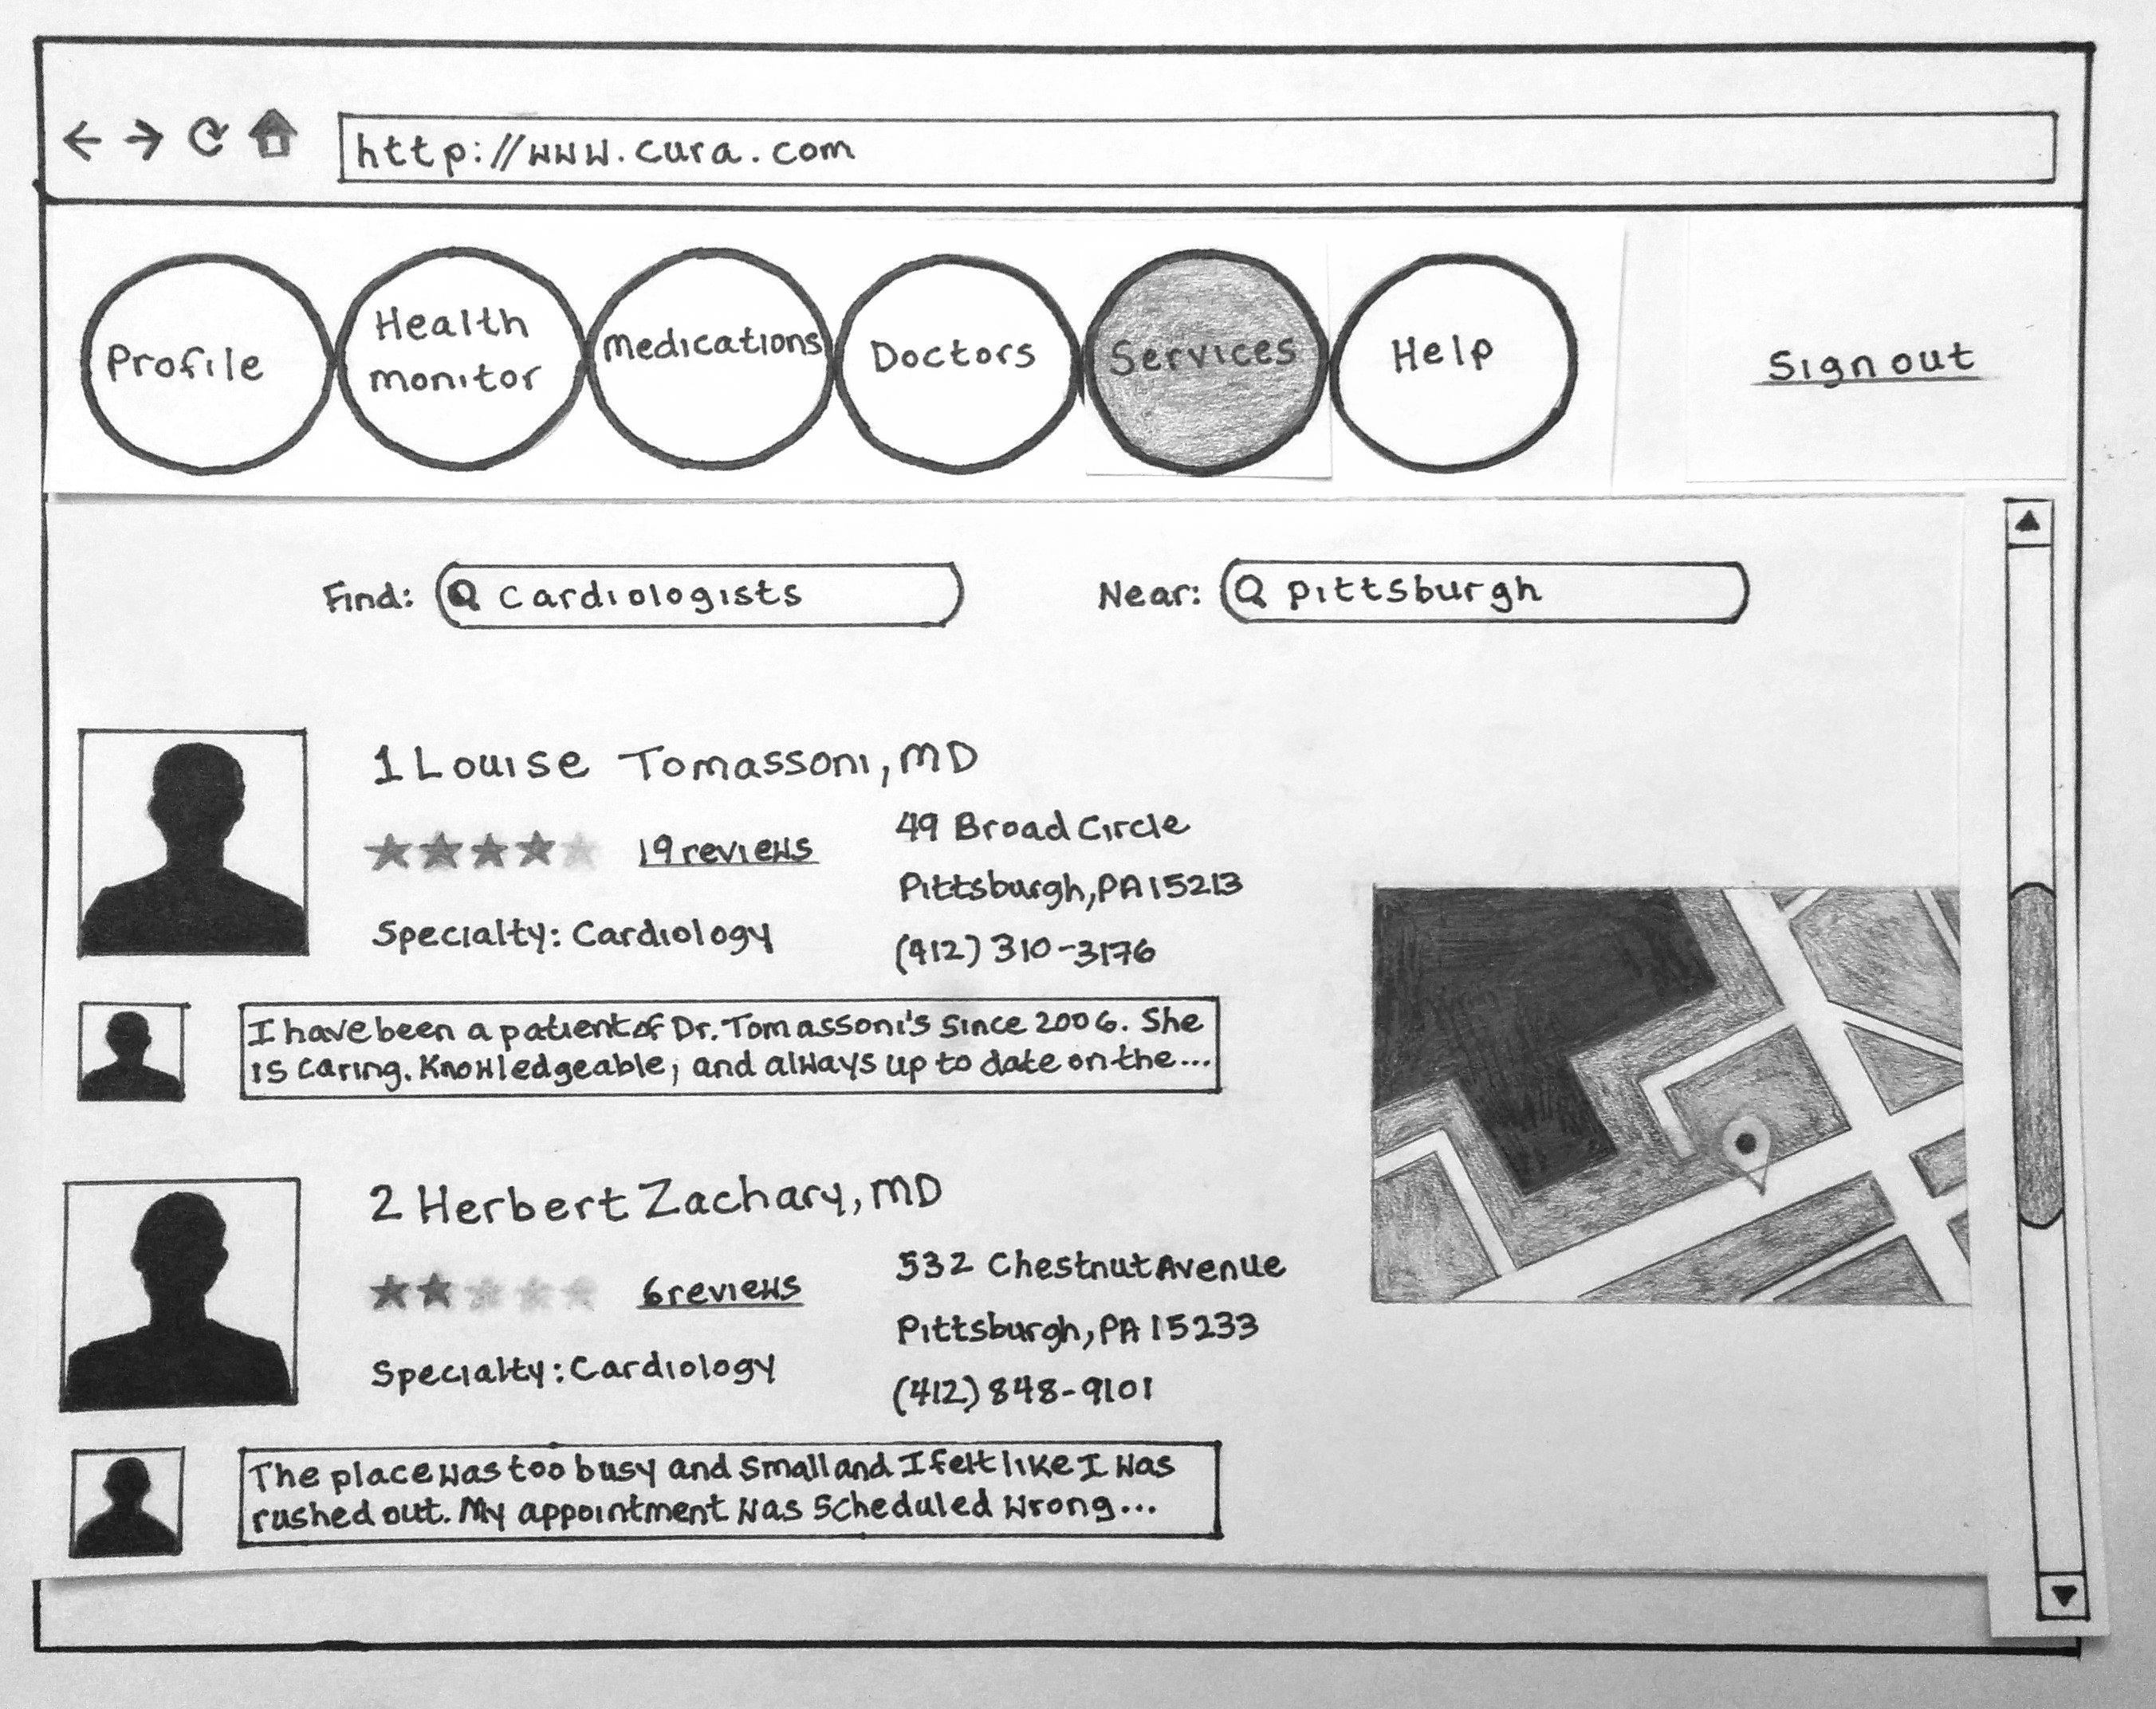 http://www.cura.com
Profile
Health
monitor
Medications
Doctors
Services
Help
Sign out
Find: Cardiologists
Near: Pittsburgh
1 Louise Tomassoni, MD
19 reviews
Specialty: Cardiology
49 Broad Circle
Pittsburgh, PA 15213
(412) 310-3176
I have been a patient of Dr. Tomassoni's since 2006. She
is caring. Knowledgeable, and always up to date on the...
2 Herbert Zachary, MD
6 reviews
Specialty: Cardiology
532 Chestnut Avenue
Pittsburgh, PA 15233
(412) 848-9101
The place was too busy and small and I felt like I was
rushed out. My appointment was scheduled wrong...